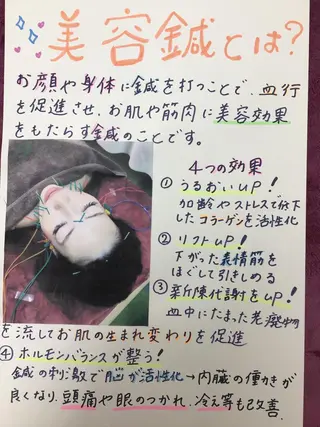 美容鍼とは?
お顔や身体に鍼を打つことで、血行
を促進させ、お肌や筋肉に美容効果
をもたらす鍼のことです。
4つの効果
① うるおいUP!
加齢やストレスで低下
したコラーゲンを活性化
② リフトUP!
下がった表情筋を
ほぐして引きしめる
③ 新陳代謝をUP!
血中にたまった老廃物
を流してお肌の生まれ変わりを促進
④ ホルモンバランスが整う!
鍼の刺激で脳が活性化→内臓の働きが
良くなり、頭痛や眼のつかれ、冷え等も改善